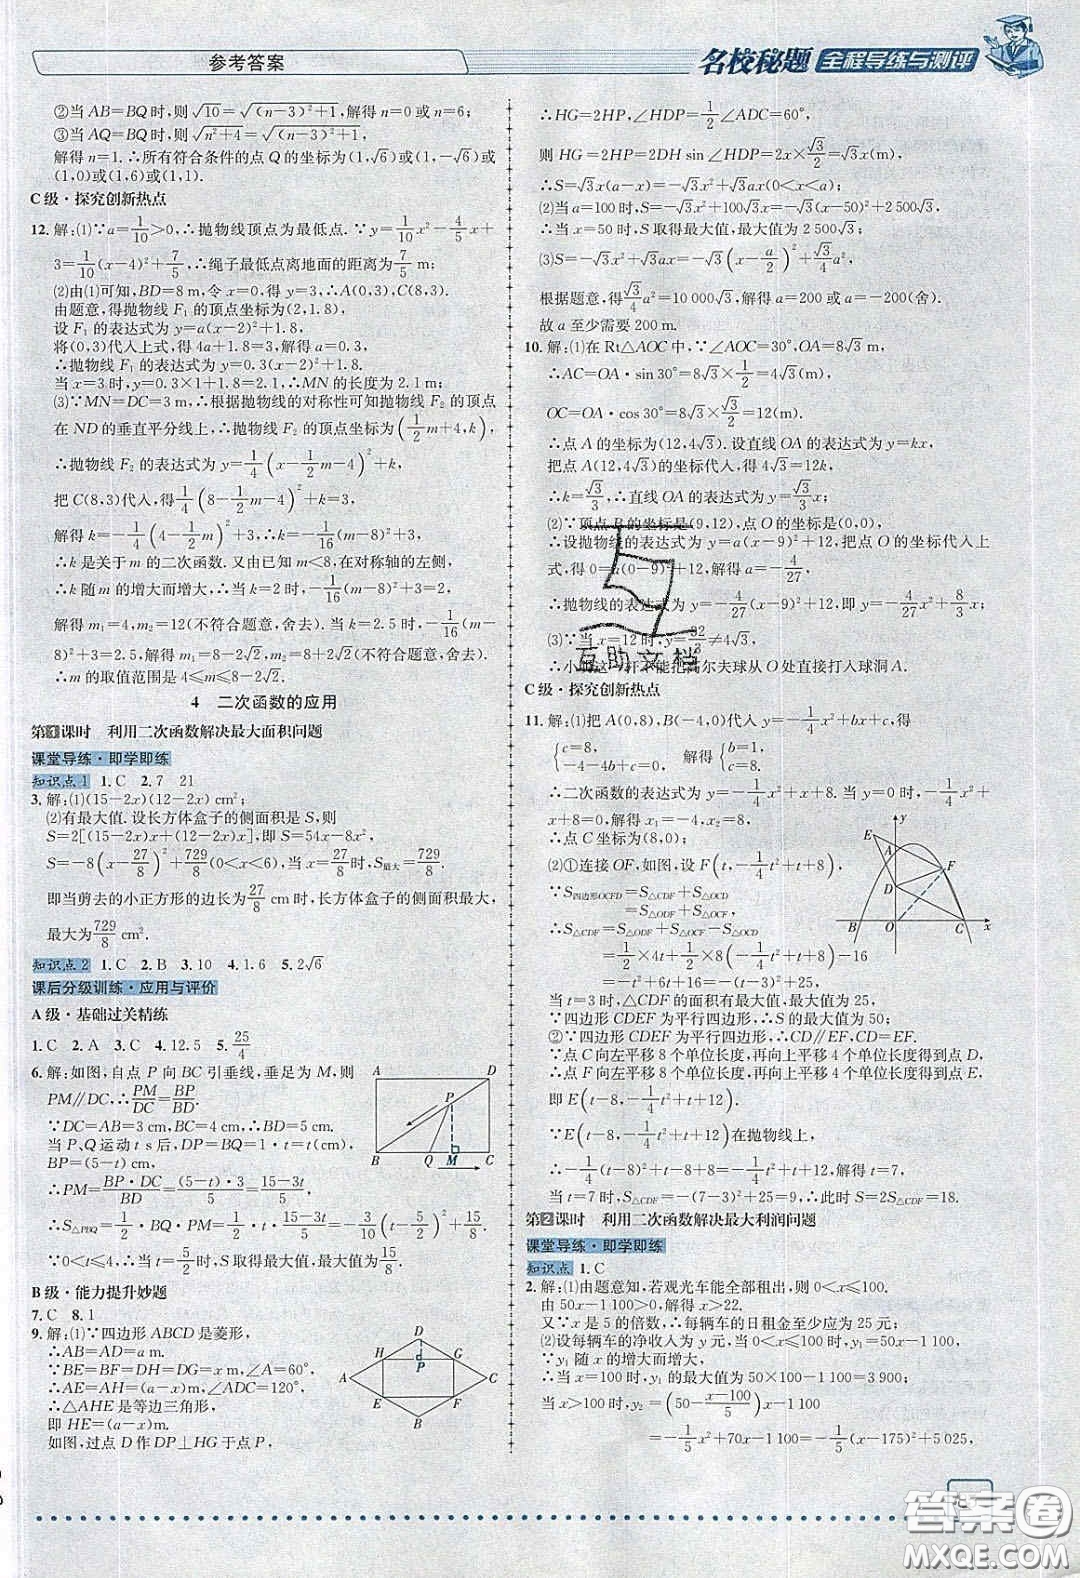 参考答案
名校秘题 全程导练与测评
②当 AB=BQ 时,则√10=√((n-3)²+1),解得 n=0 或 n=6;
③当 AQ=BQ 时,则√(n²+4)=√((n-3)²+1),
解得 n=1.∴所有符合条件的点 Q 的坐标为(1,√6)或(1,-√6)或
(1,0)或(1,6)或(1,1).
C 级·探究创新热点
12. 解:(1)∵a=1/10>0,∴抛物线顶点为最低点.∵y=1/10x²-4/5x+
3=1/10(x-4)²+7/5,∴绳子最低点离地面的距离为7/5 m;
(2)由(1)可知,BD=8 m,令 x=0.得 y=3,∴A(0,3),C(8,3).
由题意,得抛物线 F₁ 的顶点坐标为(2,1.8),
设 F₁ 的表达式为 y=a(x-2)²+1.8,
将(0,3)代入上式,得 4a+1.8=3,解得 a=0.3,
∴抛物线 F₁ 的表达式为 y=0.3(x-2)²+1.8,
当 x=3 时,y=0.3×1+1.8=2.1,∴MN 的长度为 2.1 m;
(3)∵MN=DC=3 m,∴根据抛物线的对称性可知抛物线 F₂ 的顶点
在 ND 的垂直平分线上,∴抛物线 F₂ 的顶点坐标为(1/2m+4,k),
∴抛物线 F₂ 的表达式为 y=1/4(x-1/2m-4)²+k,
把 C(8,3)代入,得1/4(8-1/2m-4)²+k=3,
解得 k=-1/4(4-1/2m)²+3=-1/16(m-8)²+3,
∴k 是关于 m 的二次函数.又由已知 m<8,在对称轴的左侧,
∴k 随 m 的增大而增大,∴当 k=2 时,-1/16(m-8)²+3=2,
解得 m₁=4,m₂=12(不符合题意,舍去).当 k=2.5 时,-1/16(m-
8)²+3=2.5,解得 m₁=8-2√2,m₂=8+2√2(不符合题意,舍去).
∴m 的取值范围是 4≤m≤8-2√2.
4 二次函数的应用
第1课时 利用二次函数解决最大面积问题
课堂导练·即学即练
知识点1 1.C 2.7 21
3. 解:(1)(15-2x)(12-2x) cm²;
(2)有最大值.设长方体盒子的侧面积是 S,则
S=2[(15-2x)x+(12-2x)x],即 S=54x-8x².
S=-8(x-27/8)²+729/8(0<x<6),当 x=27/8时,S最大=729/8.
即当剪去的小正方形的边长为27/8 cm时,长方体盒子的侧面积
最大为729/8 cm².
知识点2 1.C 2.B 3.10 4.1.6 5.2√6
课后分级训练·应用与评价
A 级·基础过关精练
1.C 2.A 3.C 4.12.5 5.25/4
6. 解:如图,自点 P 向 BC 引垂线,垂足为 M,则
PM∥DC,∴PM/DC=BP/BD.
∵DC=AB=3 cm,BC=4 cm,∴BD=5 cm.
当 P、Q 运动 t s 后,DP=BQ=1·t=t(cm),
BP=(5-t) cm,
∴PM=BP·DC/BD=(5-t)·3/5=15-3t/5,
∴S△PBQ=1/2·BQ·PM=1/2·t·15-3t/5=-3/10(t-5/2)²+15/8.
∵0<t<4,∴当 t=5/2时,S取得最大值,最大值为15/8.
A D P B Q M C
B 级·能力提升妙题
7.C 8.1
9. 解:(1)∵四边形 ABCD 是菱形,
∴AB=AD=a m.
∵BE=BF=DH=DG=x m,∠A=60°,
∴AE=AH=(a-x)m,∠ADC=120°,
∴△AHE 是等边三角形,
即 HE=(a-x)m.
如图,过点 D 作 DP⊥HG 于点 P,
D H P G A C E B F
∴HG=2HP,∠HDP=1/2∠ADC=60°,
则 HG=2HP=2DH sin∠HDP=2x×√3/2=√3x(m),
∴S=√3x(a-x)=-√3x²+√3ax(0<x<a);
(2)当 a=100 时,S=-√3x²+100√3x=-√3(x-50)²+2 500√3,
∴当 x=50 时,S 取得最大值,最大值为 2 500√3;
(3)S=-√3x²+√3ax=-√3(x-a/2)²+√3/4a²,
根据题意,得√3/4a²=10 000√3,解得 a=200 或 a=-200(舍).
故 a 至少需要 200 m.
10. 解:(1)在 Rt△AOC 中,∵∠AOC=30°,OA=8√3 m,
∴AC=OA·sin 30°=8√3×1/2=4√3(m),
OC=OA·cos 30°=8√3×√3/2=12(m).
∴点 A 的坐标为(12,4√3).设直线OA 的表达式为 y=kx,
把点 A(12,4√3)的坐标代入,得 4√3=12k,
∴k=√3/3,∴直线 OA 的表达式为 y=√3/3x;
(2)∵顶点 B 的坐标是(9,12),点 O 的坐标为(0,0),
∴设抛物线的表达式为 y=a(x-9)²+12,把点 O 的坐标代入上
式,得 0=a(0-9)²+12,解得 a=-4/27,
∴抛物线的表达式为 y=-4/27(x-9)²+12,即 y=-4/27x²+8/3x;
(3)∵当 x=12 时,y=32/3≠4√3,
∴小明这一杆不能把高尔夫球从 O 处直接打入球洞 A.
互助文档
C 级·探究创新热点
11. 解:(1)把 A(0,8),B(-4,0)代入 y=-1/4x²+bx+c,得
{c=8, -4-4b+c=0,解得{b=1, c=8.
∴二次函数的表达式为 y=-1/4x²+x+8.当 y=0 时,-1/4x²+
x+8=0,解得 x₁=-4,x₂=8,
∴点 C 坐标为(8,0);
(2)①连接 OF,如图,设 F(t,-1/4t²+t+8),
∵S四边形OCFD=S△CDF+S△OCD
=S△ODF+S△OCF,
∴S△CDF=S△ODF+S△OCF-S△OCD
=1/2×4×t+1/2×8×(-1/4t²+t+8)-1/2×4×8
=-t²+6t+16=-(t-3)²+25,
当 t=3 时,△CDF 的面积有最大值,最大值为 25,
∵四边形 CDEF 为平行四边形,∴S 的最大值为 50;
②∵四边形 CDEF 为平行四边形,∴CD∥EF,CD=EF.
∵点 C 向左平移 8 个单位长度,再向上平移 4 个单位长度得到点 D,
∴点 F 向左平移 8 个单位长度,再向上平移 4 个单位长度得到点 E,
即 E(t-8,-1/4t²+t+12),
∵E(t-8,-1/4t²+t+12)在抛物线上,
∴-1/4(t-8)²+t-8+8=-1/4t²+t+12,解得 t=7,
当 t=7 时,S△CDF=-(7-3)²+25=9,∴此时 S=2S△CDF=18.
y E A F D B O C x
第2课时 利用二次函数解决最大利润问题
课堂导练·即学即练
知识点 1.C
2. 解:(1)由题意知,若观光车能全部租出,则 0<x≤100.
由 50x-1 100>0,解得 x>22.
又∵x 是 5 的倍数,∴每辆车的日租金至少应为 25 元;
(2)设每辆车的净收入为 y 元,当 0<x≤100 时,y₁=50x-1 100,
∵y₁ 随 x 的增大而增大,
∴当 x=100 时,y₁ 的最大值为 50×100-1 100=3 900;
当 x>100 时,y₂=(50-x-100/5)x-1100
=-1/5x²+70x-1 100=-1/5(x-175)²+5 025,
答案圈
MXQE.COM